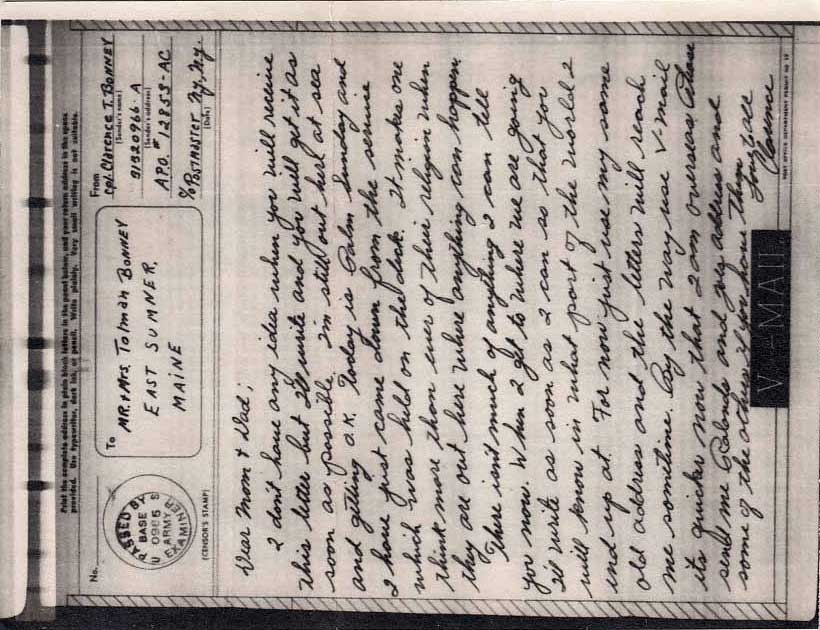 Print the complete address in plain block letters in the panel below, and your return address in the space
provided. Use typewriter, dark ink, or pencil. Write plainly. Very small writing is not suitable.
No.
PASSED BY
BASE
U 0985 S
ARMY
EXAMINER
(CENSOR'S STAMP)
To
MR. & MRS. Tolman BONNEY
EAST SUMNER,
MAINE
From
Cpl. Clarence T. BONNEY
(Sender's name)
31320966 · A
(Sender's address)
APO. # 12853-AC
% POSTMASTER N.Y., N.Y.
(Date)
Dear Mom & Dad;
I don't have any idea when you will receive
this letter but I'll write and you will get it as
soon as possible. I'm still out here at sea
and getting o.k. Today is Palm Sunday and
I have just came down from the service
which was held on the deck. It makes one
think more than ever of their religion when
they are out here where anything can happen
There isn't much of anything I can tell
you now. When I get to where we are going
I'll write as soon as I can so that you
will know in what part of the world I
end up at. For now just use my same
old address and the letters will reach
me sometime. By the way use V-mail
its quicker now that I am overseas. Please
send me address and
some of the others if you have them
Love all
Clarence
V-MAIL
POST OFFICE DEPARTMENT PERMIT NO.